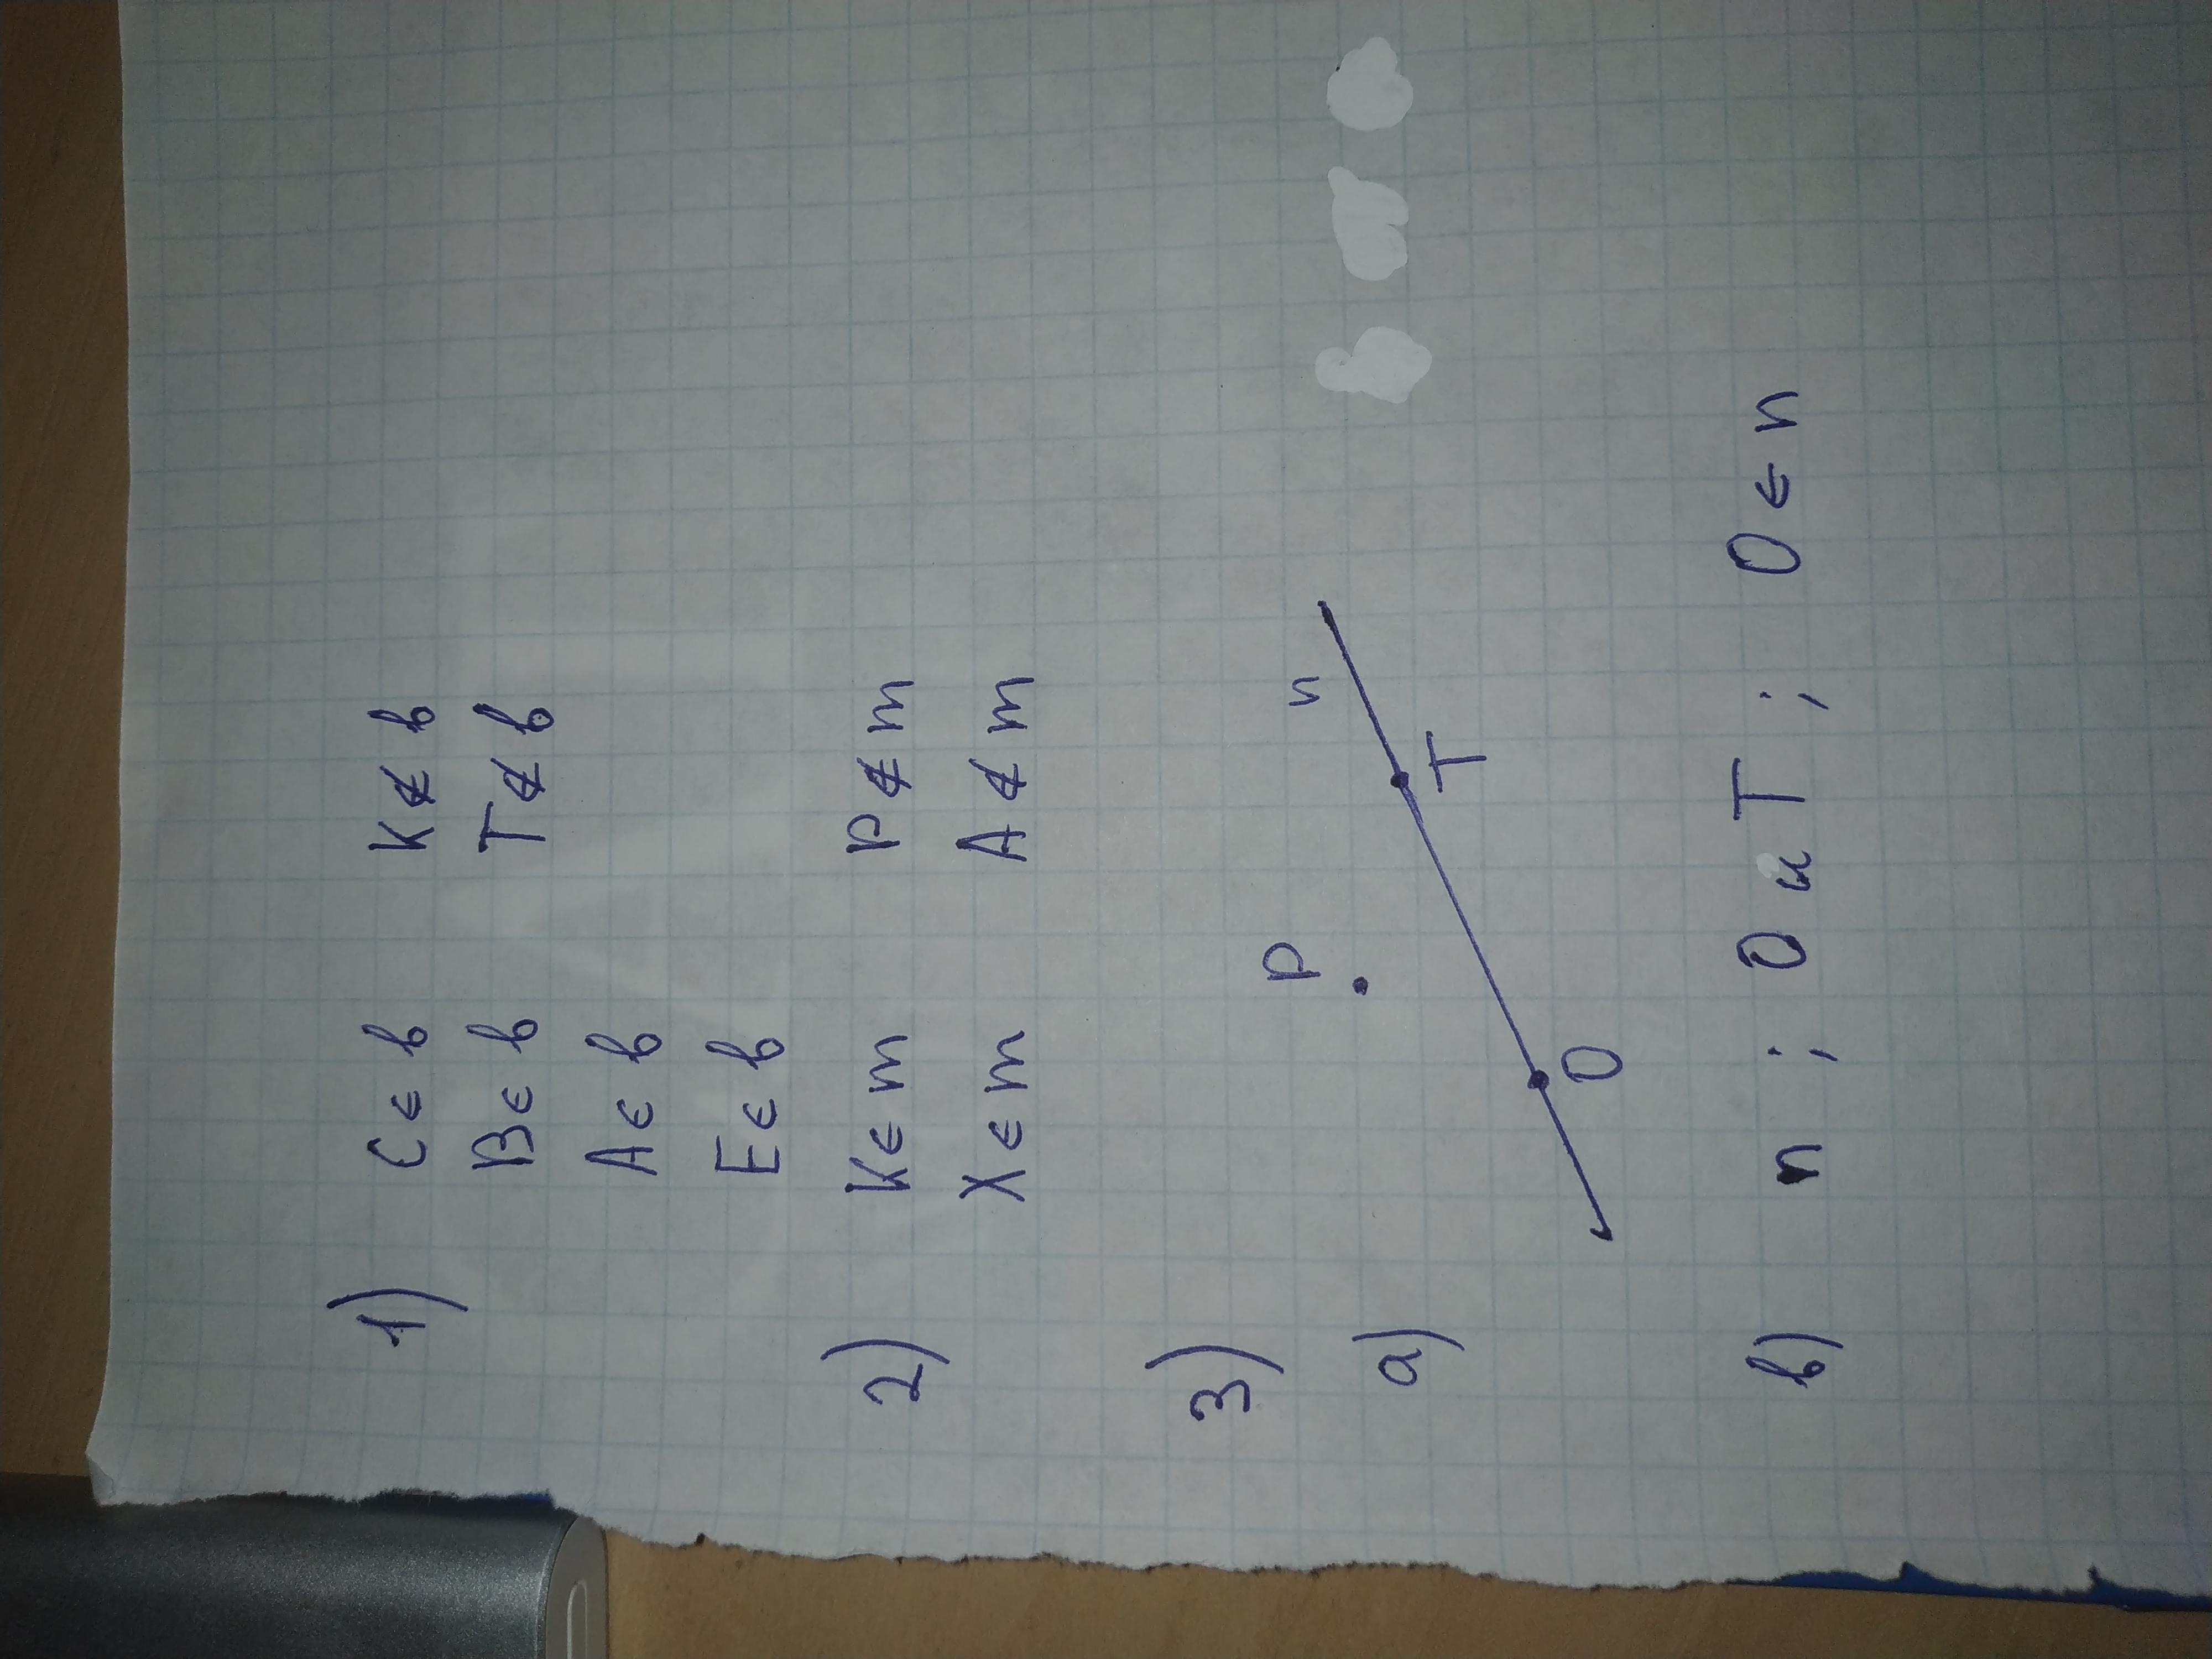 1) C ∈ b K ∉ b
B ∈ b T ∉ b
A ∈ b
E ∈ b
2) K ∈ m P ∉ m
X ∈ m A ∉ m
3)
P n
a)
T
O
b) n ; O и T ; O ∈ n